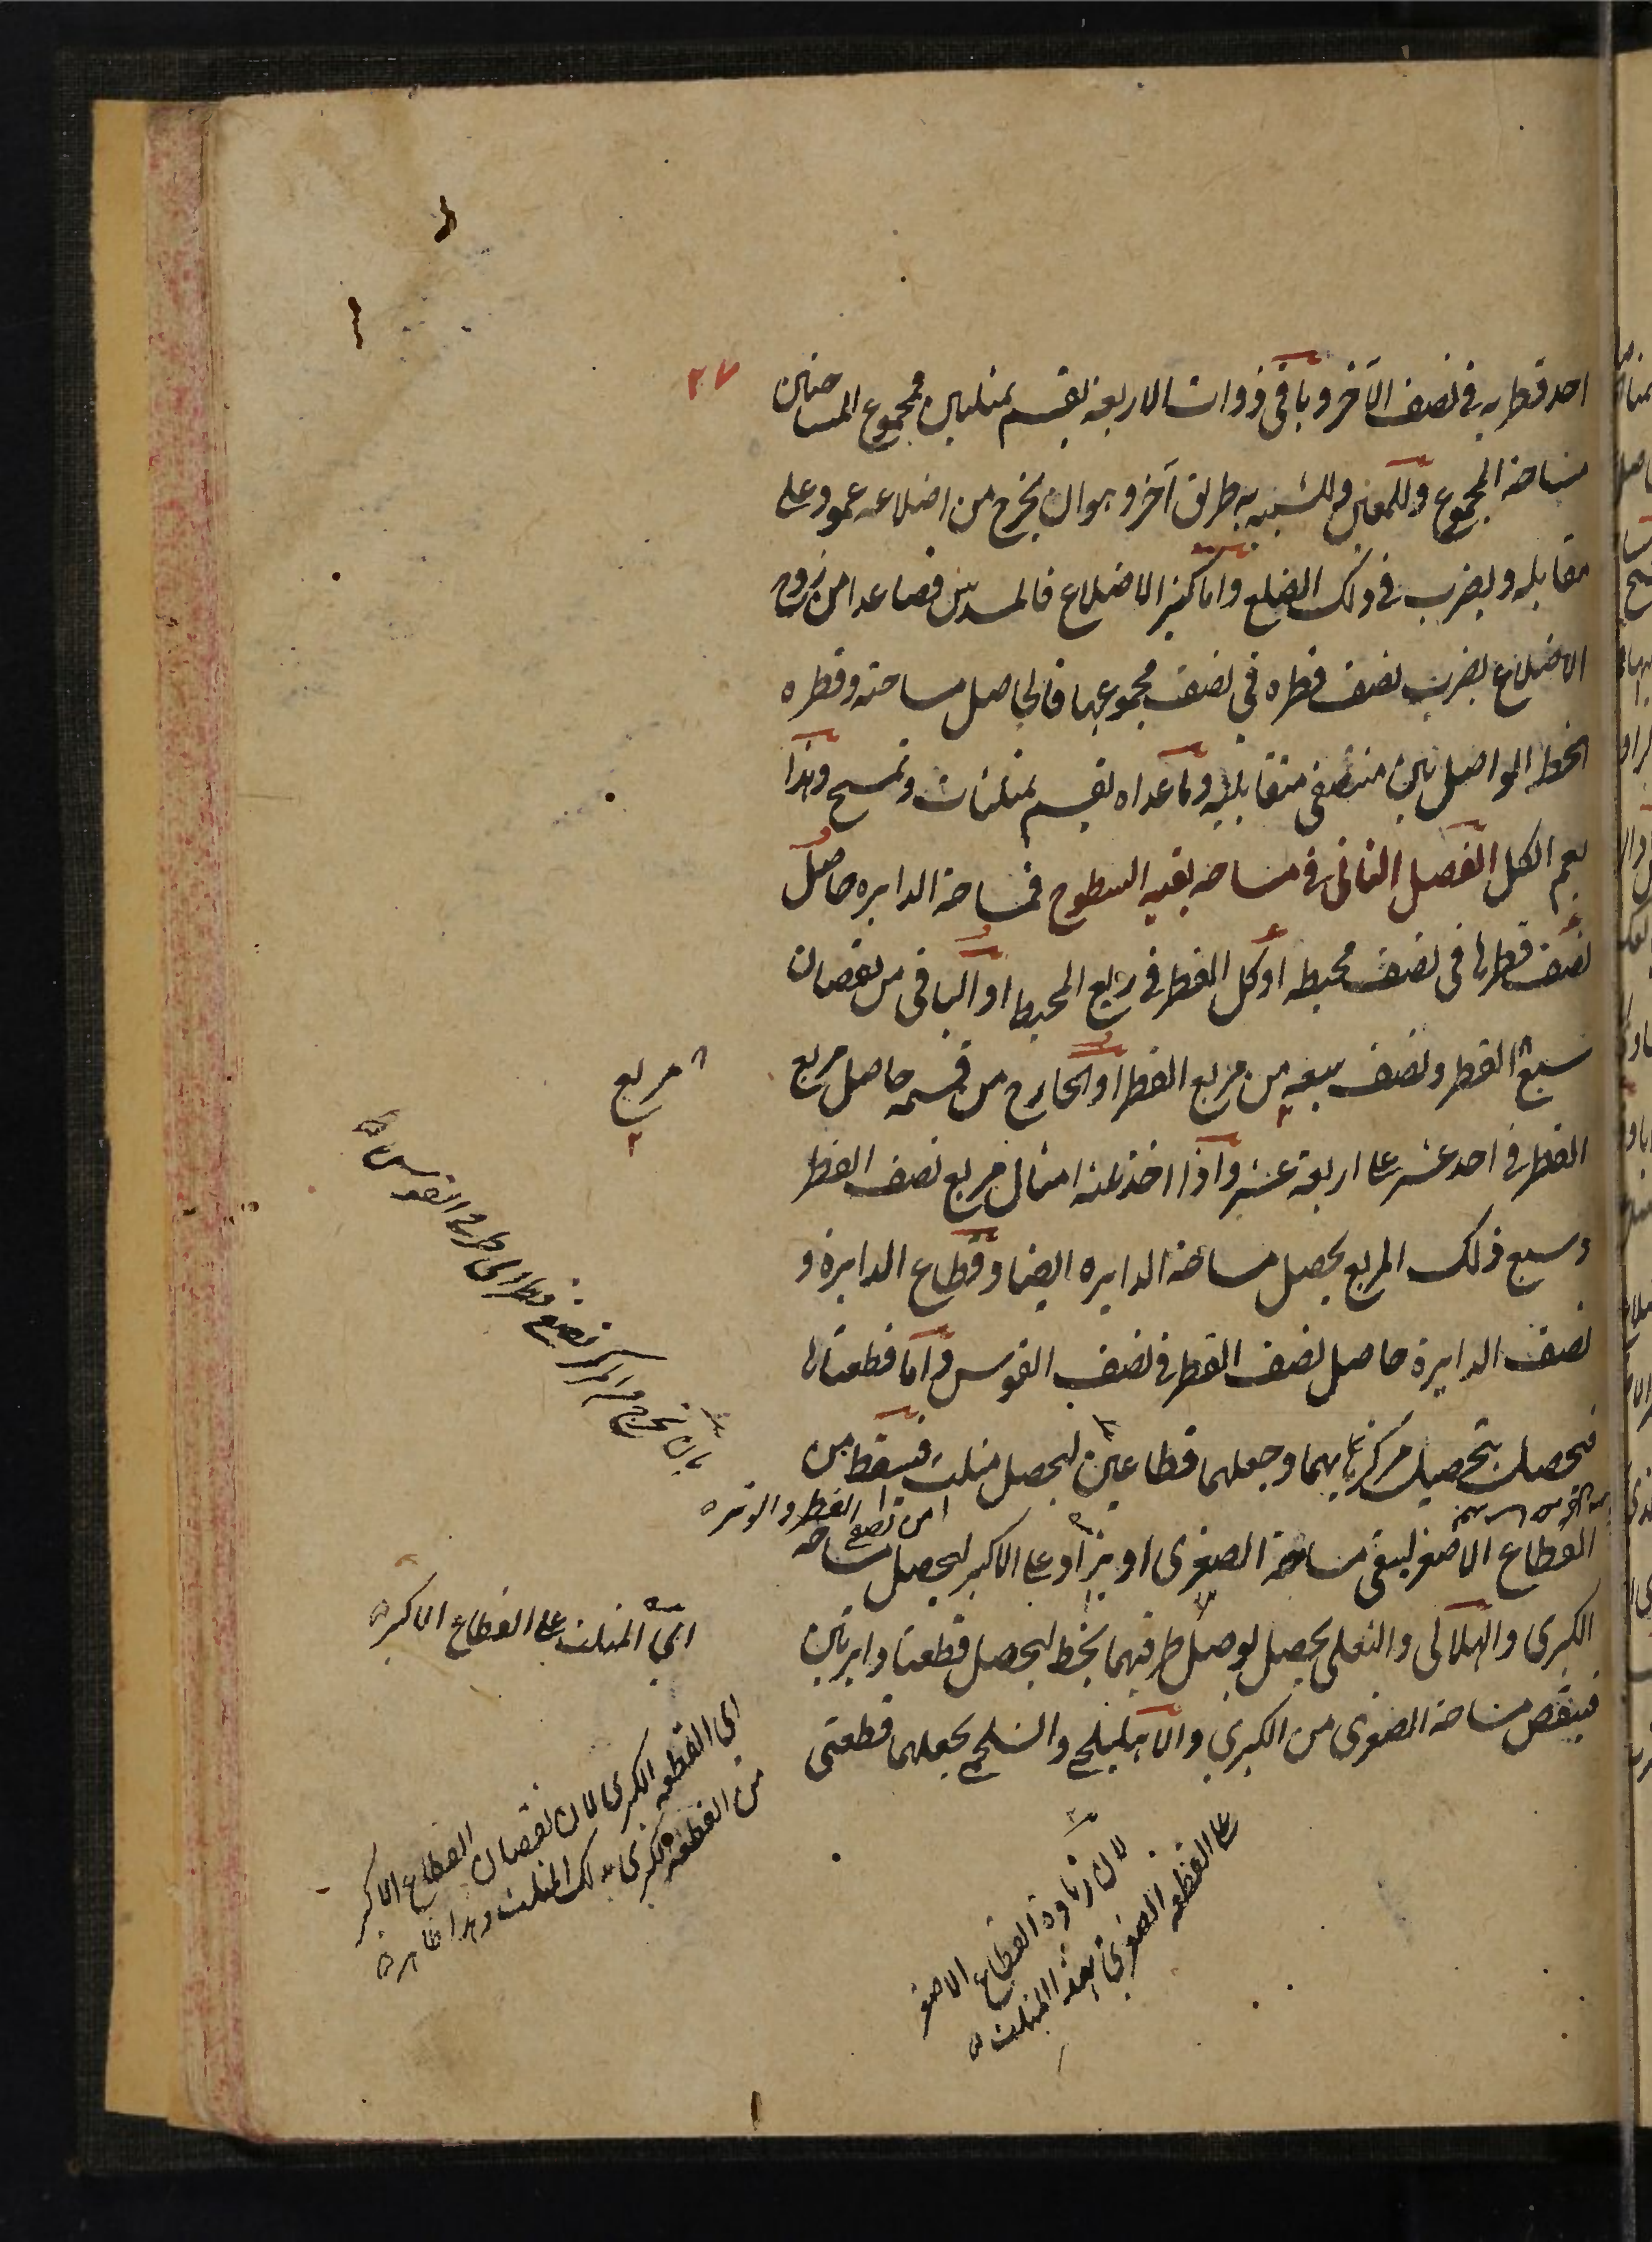 ٢٧
احد قطريه فى نصف الآخر وباقى ذوات الاربعة يقسم بمثلثين فمجموع المساحتين
مساحة المجموع وللمعين والشبيه به طريق آخر وهو ان يخرج من اضلاعه عمود على
مقابله ويضرب فى ذلك الضلع واما كثير الاضلاع فالمسدس فصاعدا من زوج
الاضلاع يضرب نصف قطره فى نصف مجموعها فالحاصل مساحته وقطره
الخط الواصل بين منتصفى متقابليه وما عداه يقسم بمثلثات وتمسح وهذا
يعم الكل الفصل الثانى فى مساحه بقيه السطوح فمساحة الدايره حاصل
نصف قطرها فى نصف محيطه او كل القطر فى ربع المحيط او الباقى من نقصان
سبع القطر ونصف سبعه من مربع القطر او الخارج من قسمه حاصل مربع
القطر فى احد عشر على اربعة عشر واذا اخذ ثلثه امثال مربع نصف القطر
وسبع ذلك المربع يحصل مساحة الدايره ايضا وقطاع الدايرة و
نصف الدايرة حاصل نصف القطر فى نصف القوس واما قطعتاها
فتحصلت بتحصيل مركزيهما وجعلهما قطاعين ليحصل مثلث فيسقط من
القطاع الاصغر ليبقى مساحة الصغرى او يزاد على الاكبر ليحصل مساحة
الكبرى والهلالى والنعلى يحصل بوصل طرفيهما بخط ليحصل قطعتا دايرتين
فينقص مساحة الصغرى من الكبرى والاهليلجى والشلجمى يجعلهما قطعتى
مربع
بان يخرج من المركز نصفى قطر الى طرفى القوس
من نصفى القطر والوتر
اى المثلث على القطاع الاكبر
اى القطعه الكبرى لان نقصان القطاع الاكبر
من القطعه الكبرى بذلك المثلث وهذا ظاهر
لان زيادة القطاع الاصغر
على القطعه الصغرى بهذا المثلث